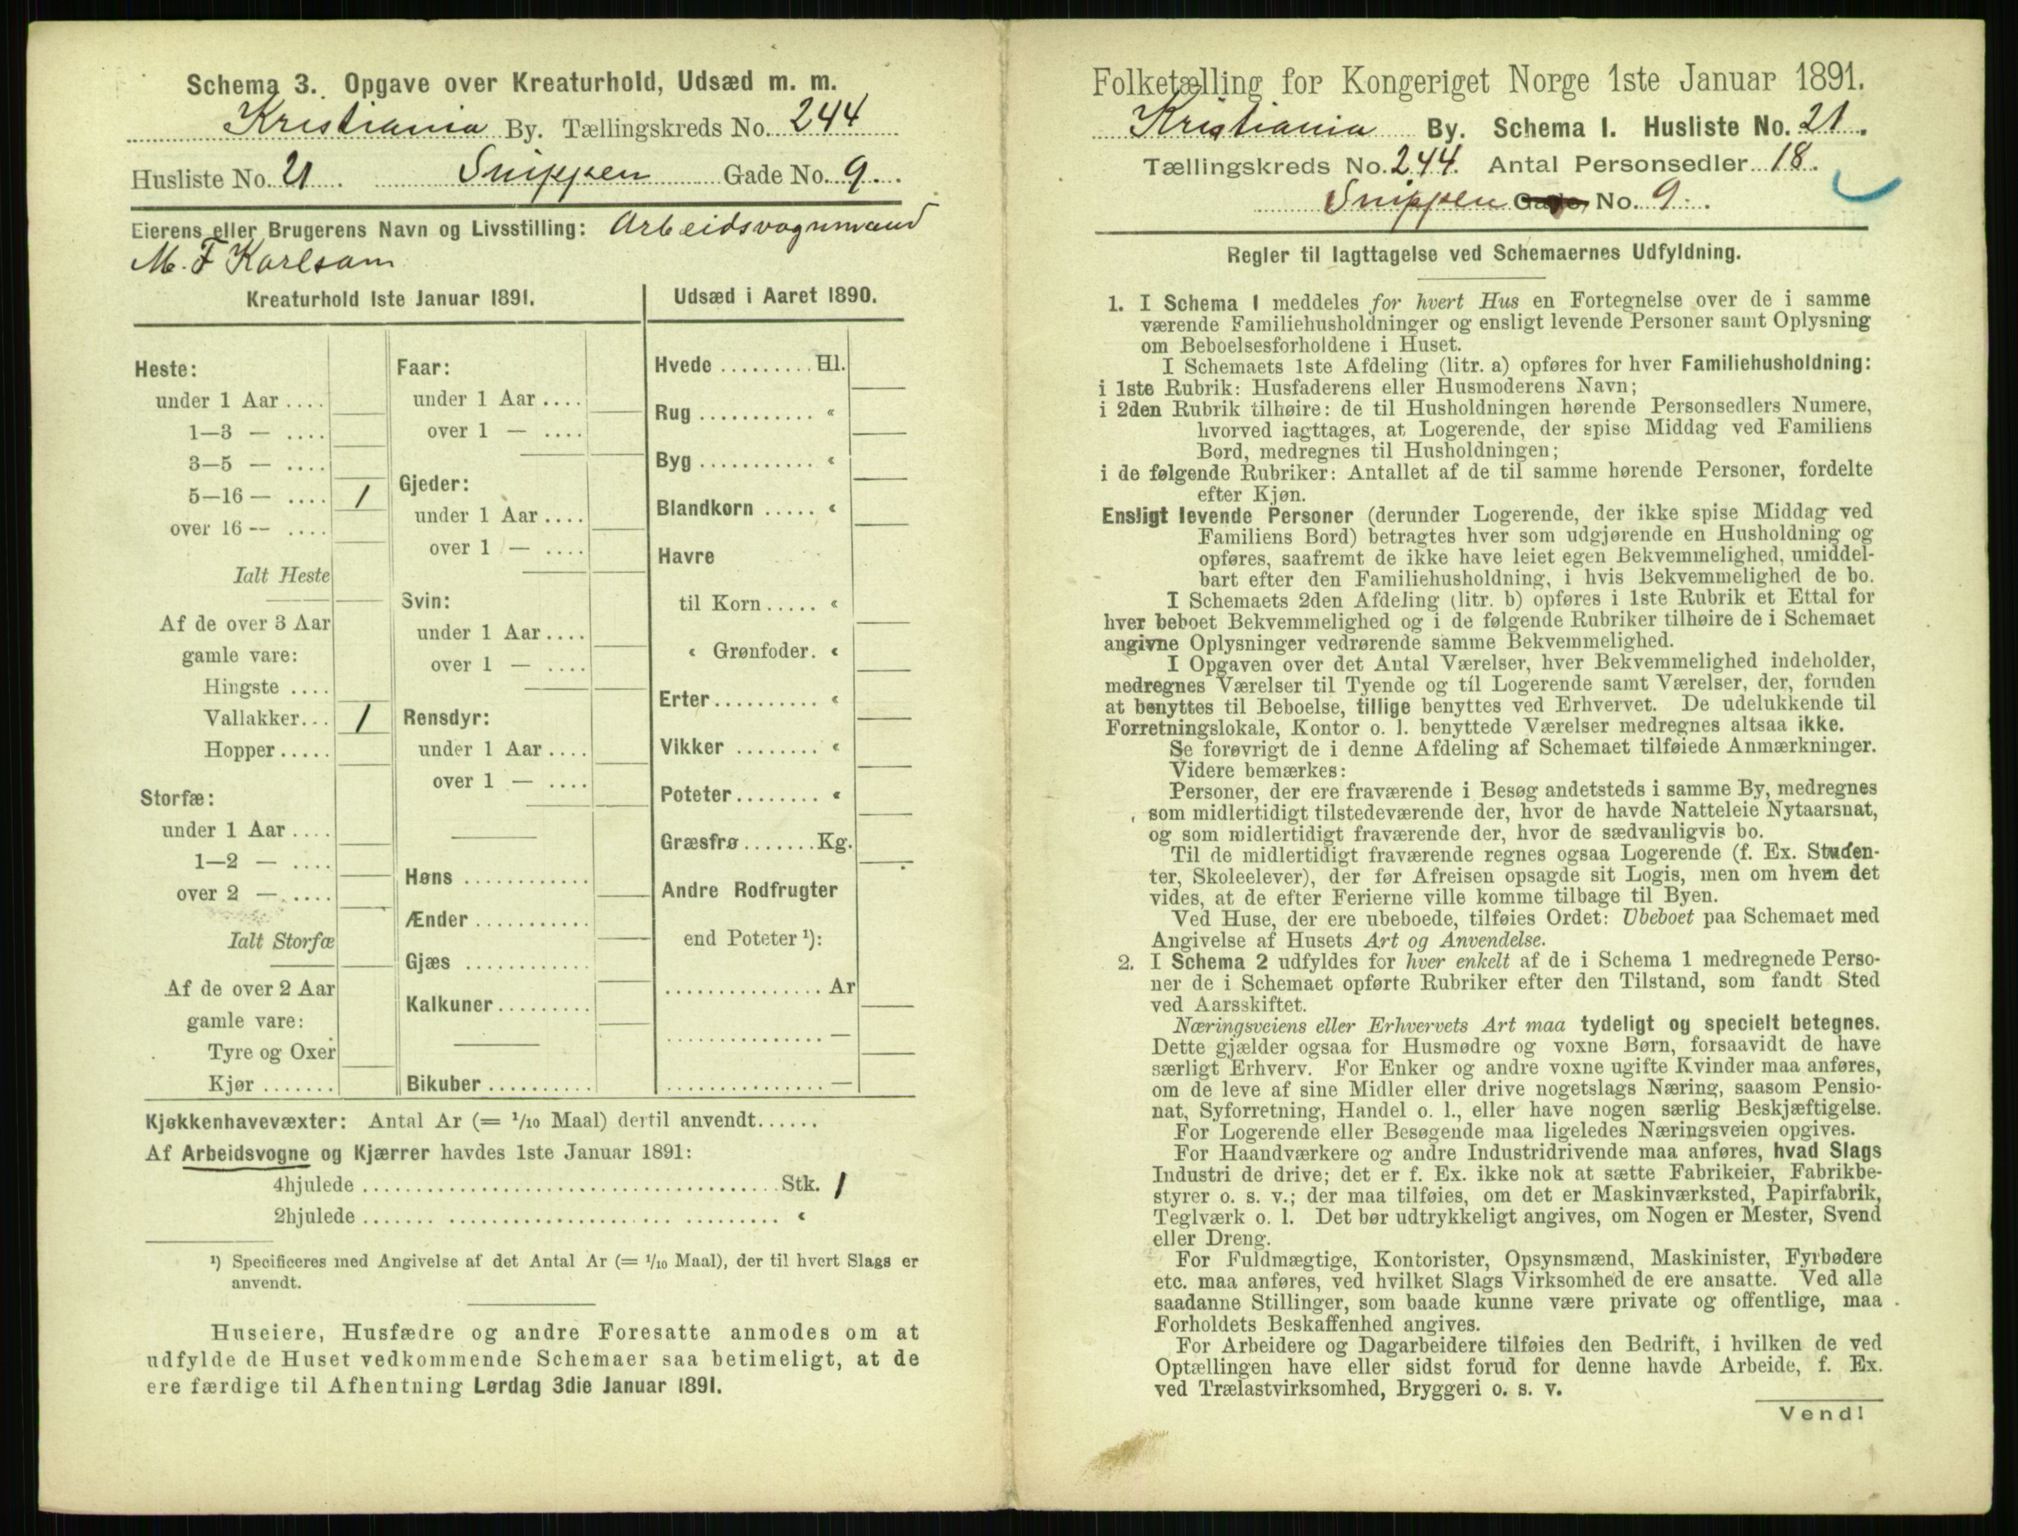 Schema 3. Opgave over Kreaturhold, Udsæd m. m.
Kristiania By. Tællingskreds No. 244
Husliste No. 21. Snippen Gade No. 9.
Eierens eller Brugerens Navn og Livsstilling: Arbeidsvognmand
M. F Karlsom
Kreaturhold 1ste Januar 1891.
Heste:
under 1 Aar ....
1—3 — ....
3—5 — ....
5—16 — .... 1
over 16 -- ....
Ialt Heste
Af de over 3 Aar
gamle vare:
Hingste ....
Vallakker... 1
Hopper.....
Storfæ:
under 1 Aar ....
1—2 — ....
over 2 — ....
Ialt Storfæ
Af de over 2 Aar
gamle vare:
Tyre og Oxer
Kjør .......
Faar:
under 1 Aar ....
over 1 — ....
Gjeder:
under 1 Aar ....
over 1 — ....
Svin:
under 1 Aar ....
over 1 — ....
Rensdyr:
under 1 Aar ....
over 1 — ....
Høns ............
Ænder ...........
Gjæs ............
Kalkuner .........
Bikuber ..........
Udsæd i Aaret 1890.
Hvede ......... Hl.
Rug ........... «
Byg ........... «
Blandkorn ..... «
Havre
til Korn ..... «
« Grønfoder. «
Erter.......... «
Vikker ........ «
Poteter........ «
Græsfrø ....... Kg.
Andre Rodfrugter
end Poteter ¹):
............... Ar
............... —
............... —
Kjøkkenhavevæxter: Antal Ar (= 1/10 Maal) dertil anvendt......
Af Arbeidsvogne og Kjærrer havdes 1ste Januar 1891:
4hjulede ........................................ Stk. 1
2hjulede ........................................ «
¹) Specificeres med Angivelse af det Antal Ar (= 1/10 Maal), der til hvert Slags er
anvendt.
Huseiere, Husfædre og andre Foresatte anmodes om at
udfylde de Huset vedkommende Schemaer saa betimeligt, at de
ere færdige til Afhentning Lørdag 3die Januar 1891.
Folketælling for Kongeriget Norge 1ste Januar 1891.
Kristiania By. Schema 1. Husliste No. 21.
Tællingskreds No. 244. Antal Personsedler 18.
Snippen Gade, No. 9.
Regler til Iagttagelse ved Schemaernes Udfyldning.
1. I Schema 1 meddeles for hvert Hus en Fortegnelse over de i samme
værende Familiehusholdninger og ensligt levende Personer samt Oplysning
om Beboelsesforholdene i Huset.
I Schemaets 1ste Afdeling (litr. a) opføres for hver Familiehusholdning:
i 1ste Rubrik: Husfaderens eller Husmoderens Navn;
i 2den Rubrik tilhøire: de til Husholdningen hørende Personsedlers Numere,
hvorved iagttages, at Logerende, der spise Middag ved Familiens
Bord, medregnes til Husholdningen;
i de følgende Rubriker: Antallet af de til samme hørende Personer, fordelte
efter Kjøn.
Ensligt levende Personer (derunder Logerende, der ikke spise Middag ved
Familiens Bord) betragtes hver som udgjørende en Husholdning og
opføres, saafremt de ikke have leiet egen Bekvemmelighed, umiddel-
bart efter den Familiehusholdning, i hvis Bekvemmelighed de bo.
I Schemaets 2den Afdeling (litr. b) opføres i 1ste Rubrik et Ettal for
hver beboet Bekvemmelighed og i de følgende Rubriker tilhøire de i Schemaet
angivne Oplysninger vedrørende samme Bekvemmelighed.
I Opgaven over det Antal Værelser, hver Bekvemmelighed indeholder,
medregnes Værelser til Tyende og til Logerende samt Værelser, der, foruden
at benyttes til Beboelse, tillige benyttes ved Erhvervet. De udelukkende til
Forretningslokale, Kontor o. l. benyttede Værelser medregnes altsaa ikke.
Se forøvrigt de i denne Afdeling af Schemaet tilføiede Anmærkninger.
Videre bemærkes:
Personer, der ere fraværende i Besøg andetsteds i samme By, medregnes
som midlertidigt tilstedeværende der, hvor de havde Natteleie Nytaarsnat,
og som midlertidigt fraværende der, hvor de sædvanligvis bo.
Til de midlertidigt fraværende regnes ogsaa Logerende (f. Ex. Studen-
ter, Skoleelever), der før Afreisen opsagde sit Logis, men om hvem det
vides, at de efter Ferierne ville komme tilbage til Byen.
Ved Huse, der ere ubeboede, tilføies Ordet: Ubeboet paa Schemaet med
Angivelse af Husets Art og Anvendelse.
2. I Schema 2 udfyldes for hver enkelt af de i Schema 1 medregnede Perso-
ner de i Schemaet opførte Rubriker efter den Tilstand, som fandt Sted
ved Aarsskiftet.
Næringsveiens eller Erhvervets Art maa tydeligt og specielt betegnes.
Dette gjælder ogsaa for Husmødre og voxne Børn, forsaavidt de have
særligt Erhverv. For Enker og andre voxne ugifte Kvinder maa anføres,
om de leve af sine Midler eller drive nogetslags Næring, saasom Pensio-
nat, Syforretning, Handel o. l., eller have nogen særlig Beskjæftigelse.
For Logerende eller Besøgende maa ligeledes Næringsveien opgives.
For Haandværkere og andre Industridrivende maa anføres, hvad Slags
Industri de drive; det er f. Ex. ikke nok at sætte Fabrikeier, Fabrikbe-
styrer o. s. v.; der maa tilføies, om det er Maskinværksted, Papirfabrik,
Teglværk o. l. Det bør udtrykkeligt angives, om Nogen er Mester, Svend
eller Dreng.
For Fuldmægtige, Kontorister, Opsynsmænd, Maskinister, Fyrbødere
etc. maa anføres, ved hvilket Slags Virksomhed de ere ansatte. Ved alle
saadanne Stillinger, som baade kunne være private og offentlige, maa
Forholdets Beskaffenhed angives.
For Arbeidere og Dagarbeidere tilføies den Bedrift, i hvilken de ved
Optællingen have eller sidst forud for denne havde Arbeide, f. Ex.
ved Trælastvirksomhed, Bryggeri o. s. v.
Vend!